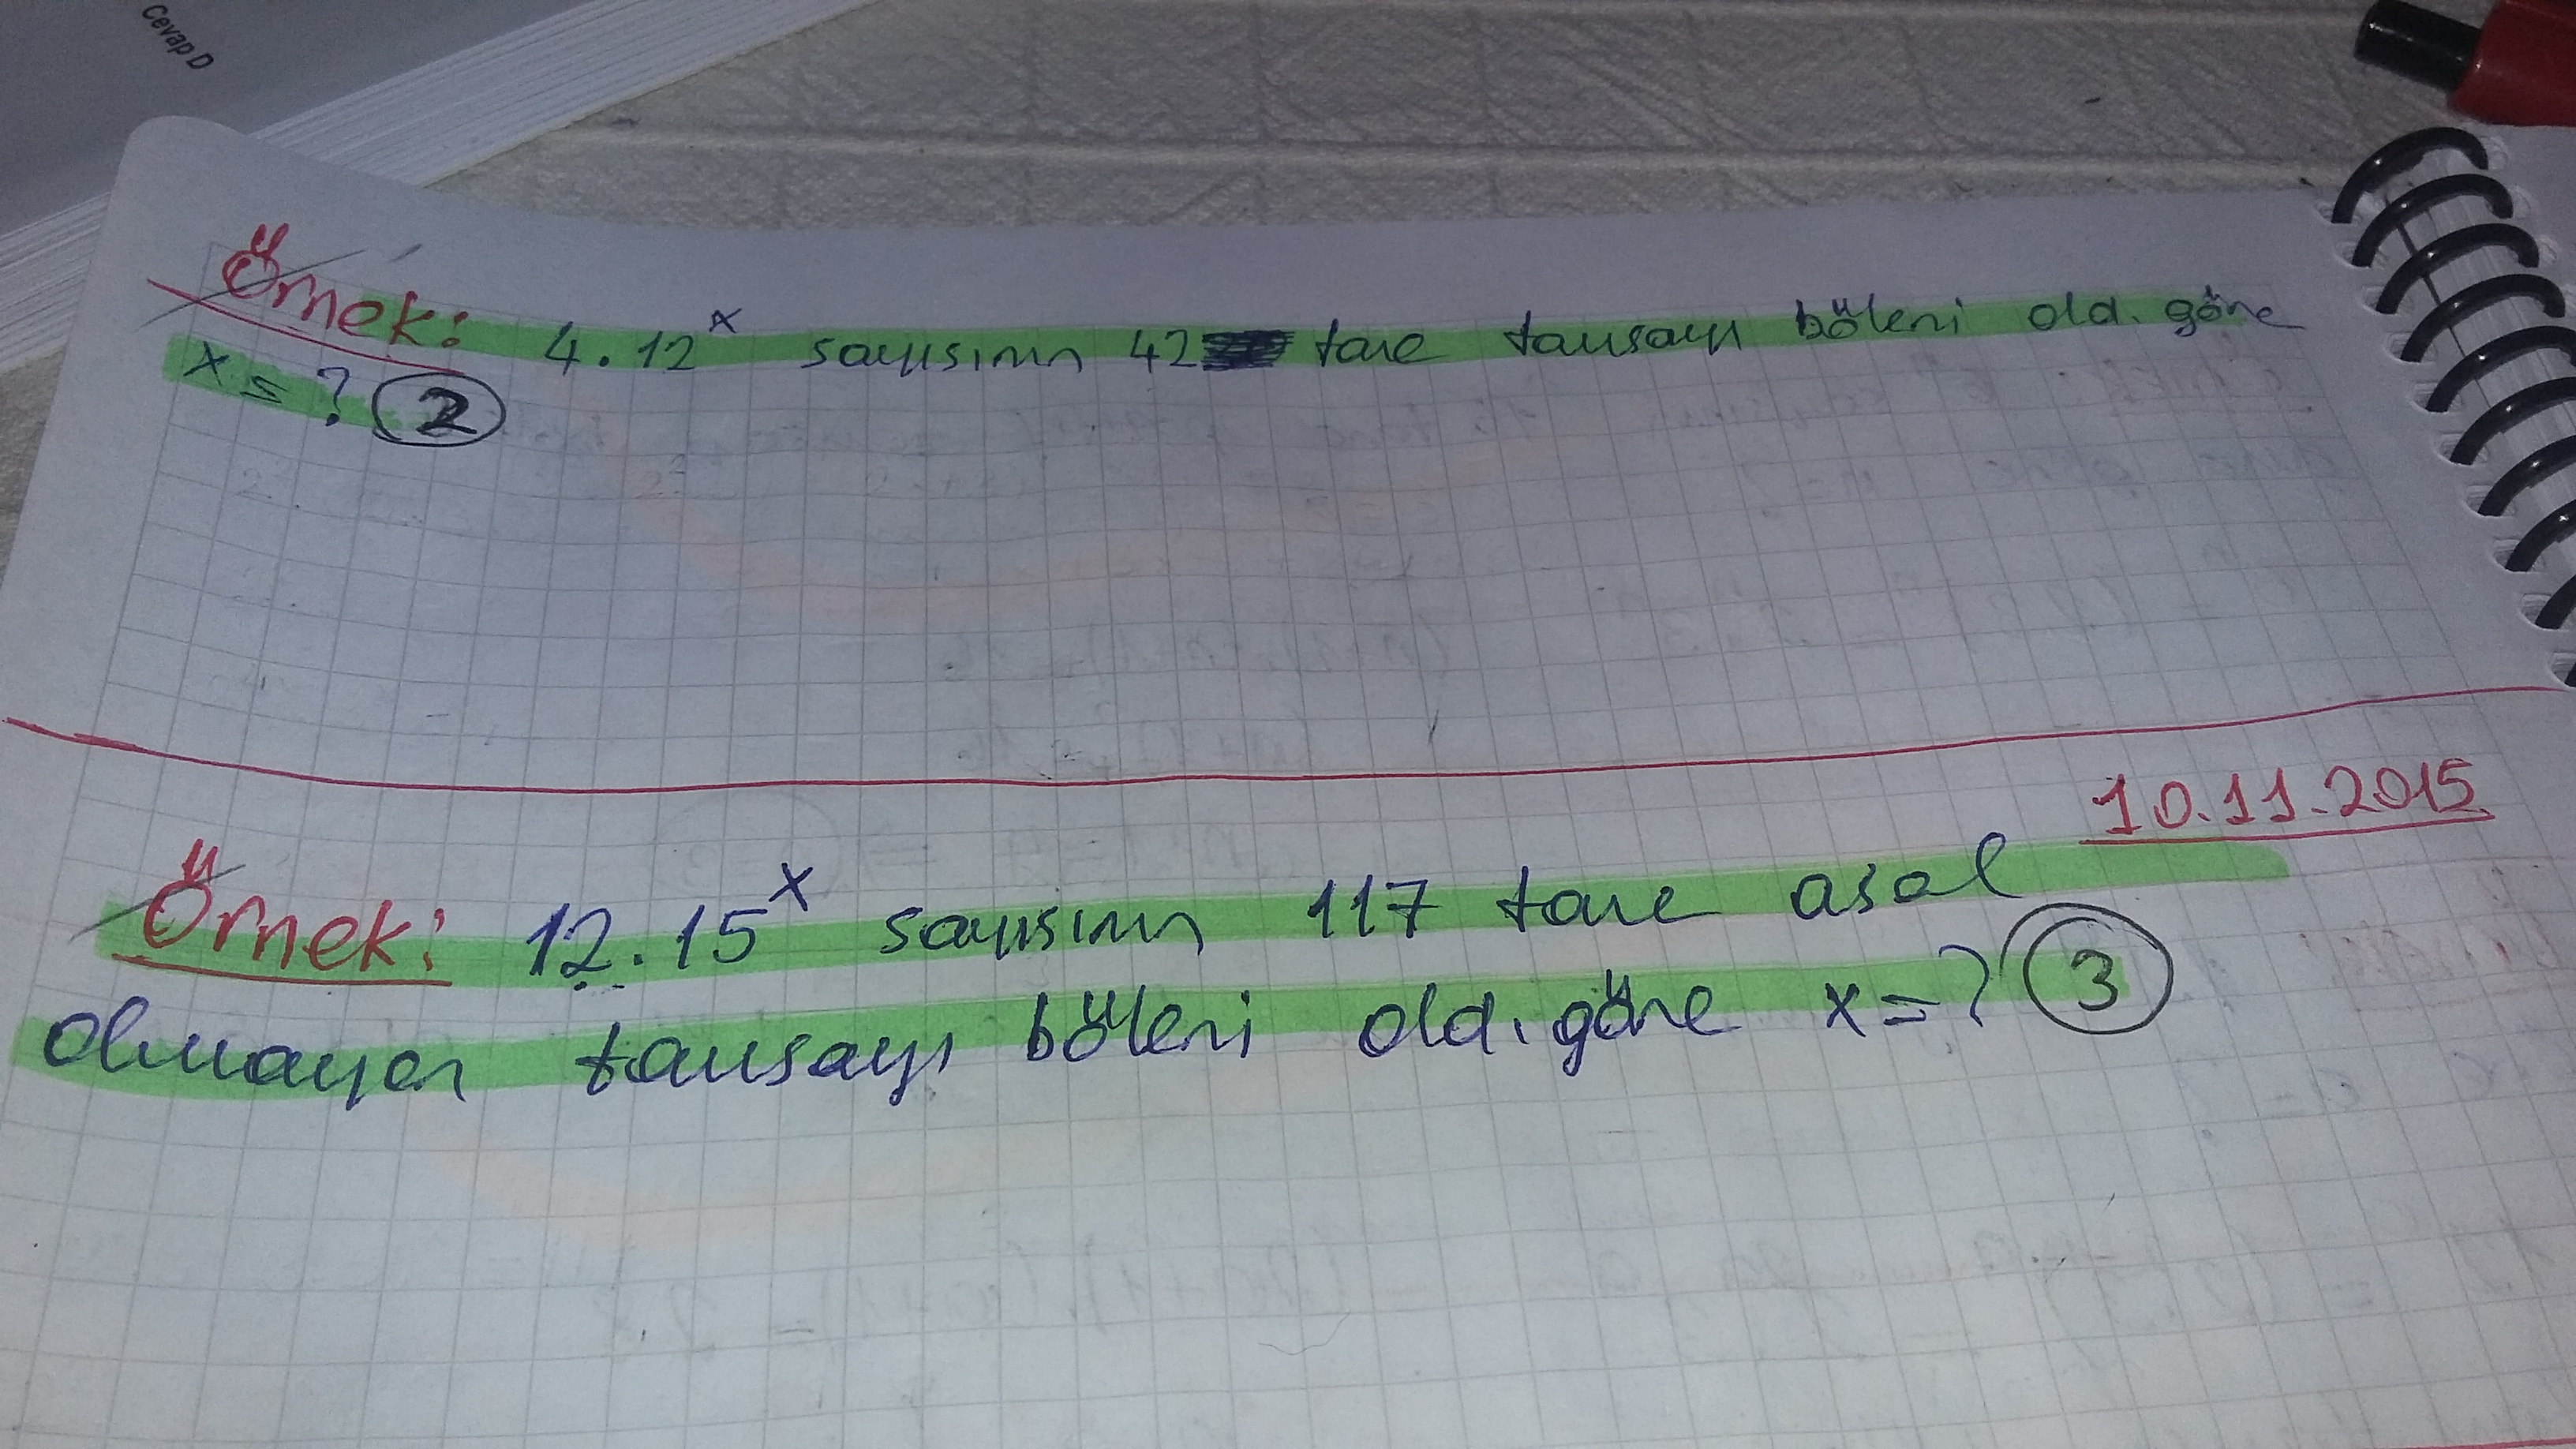 Cevap D
Örnek: 4.12ˣ sayısının 42 tane tamsayı böleni old. göre
x=? 2
10.11.2015
Örnek: 12.15ˣ sayısının 117 tane asal
olmayan tamsayı böleni old. göre x=? 3